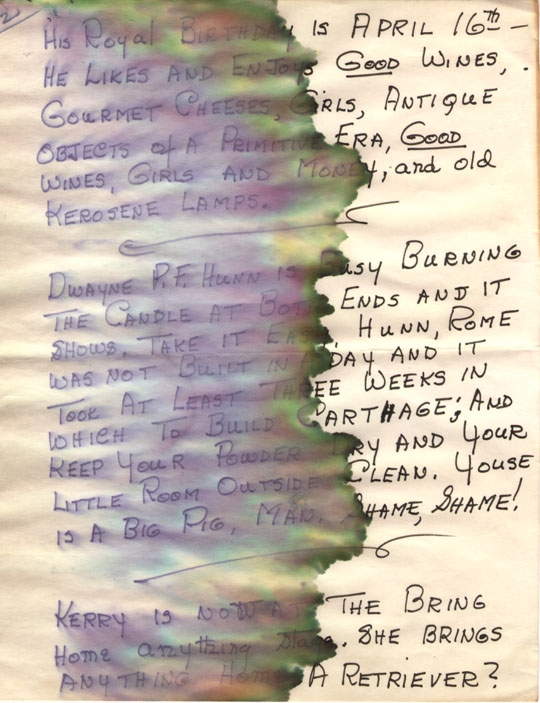 2
His Royal Birthday is April 16th –
He Likes and Enjoys Good Wines,
Gourmet Cheeses, Girls, Antique
Objects of A Primitive Era, Good
Wines, Girls and Money, and old
Kerosene Lamps.
Dwayne P.F. Hunn is Busy Burning
The Candle at Both Ends and it
Shows. Take it Easy Hunn, Rome
was not Built in A day and it
Took At Least Three Weeks in
Which To Build Carthage; And
Keep Your Powder Dry and Your
Little Room Outside Clean. Youse
is A Big Pig, Man. Shame, Shame!
Kerry is now at The Bring
Home anything Stage. She Brings
Anything Home. A Retriever?